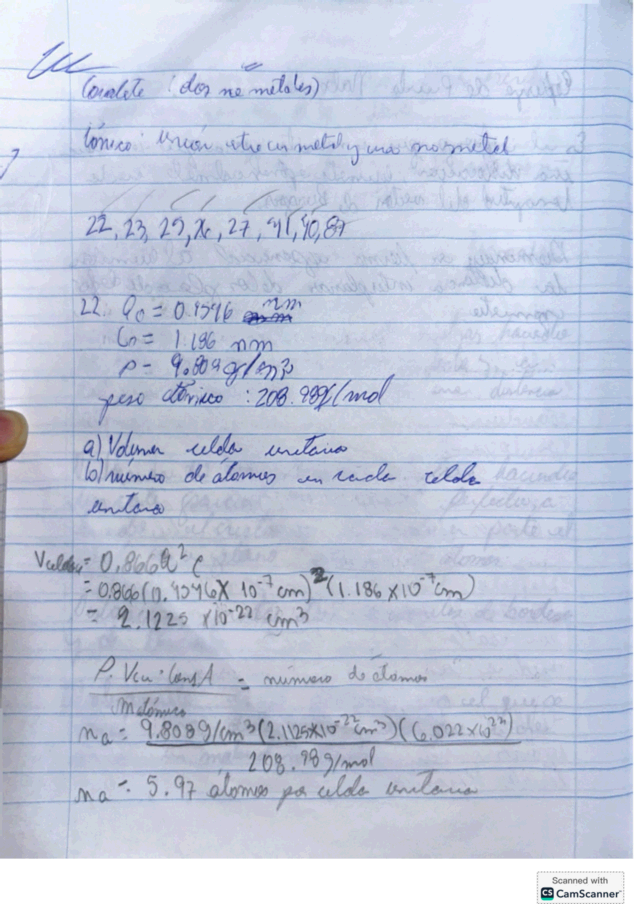 Covalente (dos no metales)
Iónico: unión entre un metal y un no metal
22, 23, 25, 26, 27, 41, 40, 87
22. a₀ = 0.4546 nm
C₀ = 1.186 nm
ρ = 9.808 g/cm³
peso atómico : 208.98g/mol
a) Volumen celda unitaria
b) número de átomos en cada celda
unitaria
Vcelda = 0.866a² c
= 0.866(0.4546 X 10⁻⁷ cm)² (1.186 X10⁻⁷ cm)
= 2.1225 x10⁻²² cm³
ρ. Vcu . Cons A = número de átomos
M atómico
na = 9.808g/cm³ (2.1125x10⁻²² cm³)(6.022 x10²³)
208.98g/mol
na = 5.97 átomos por celda unitaria
Scanned with
CS CamScanner